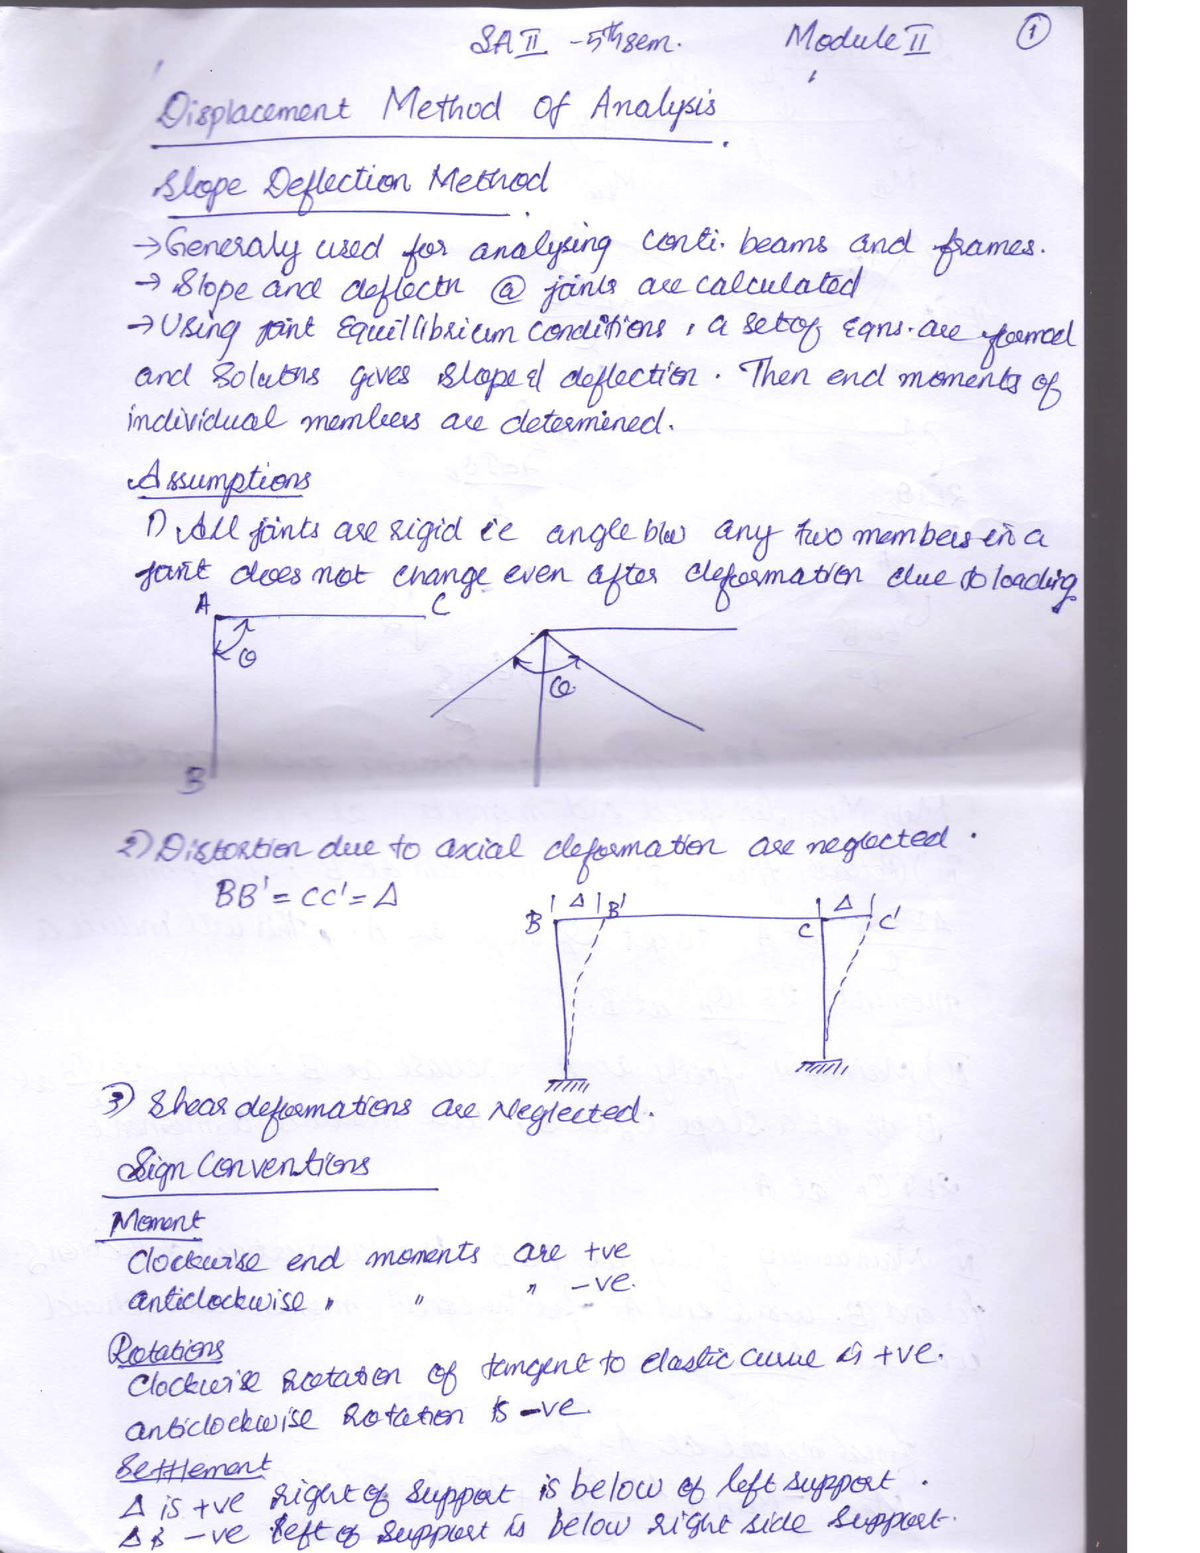 SA II - 5th sem. Module II 1
Displacement Method of Analysis
Slope Deflection Method
→ Generaly used for analysing conti. beams and frames.
→ Slope and deflectn @ joints are calculated
→ Using joint Equillibrium conditions, a set of Eqns. are formed
and Solutns gives slope & deflection. Then end moments of
individual members are determined.
Assumptions
1) All joints are rigid ie angle b/w any two members in a
joint does not change even after deformation due to loading
A C
θ
θ
B
2) Distortion due to axial deformation are neglected.
BB' = CC' = Δ
Δ B' Δ
B C C'
3) Shear deformations are Neglected.
Sign Conventions
Moment
Clockwise end moments are +ve
anticlockwise " " " -ve.
Rotations
Clockwise rotation of tangent to elastic curve is +ve.
anticlockwise Rotation is -ve.
Settlement
Δ is +ve right of support is below of left support.
Δ is -ve left of support is below right side support.